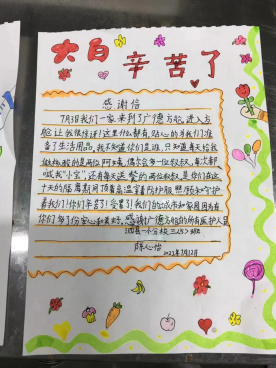 大白辛苦了
感谢信
7月3日我们一家来到了广德方舱,进入方
舱让我很惊讶!这里什么都有,贴心的为我们准
备了生活用品,我不知道你们是谁,只知道每天给我
做核酸的是两位阿姨,偶尔会多一位叔叔,每次都
喊我“小宝”,还有每天送餐的两位叔叔,是你们在这
十天的照顾,期间顶着高温穿着防护服照顾和守护
着我们!你们辛苦了!受累了!我们的城市和家园因为有
你们多了份安心和美好,感谢广德方舱的所有医护人员
泗县一小分校三(5)班
陈心怡
2022年7月12日